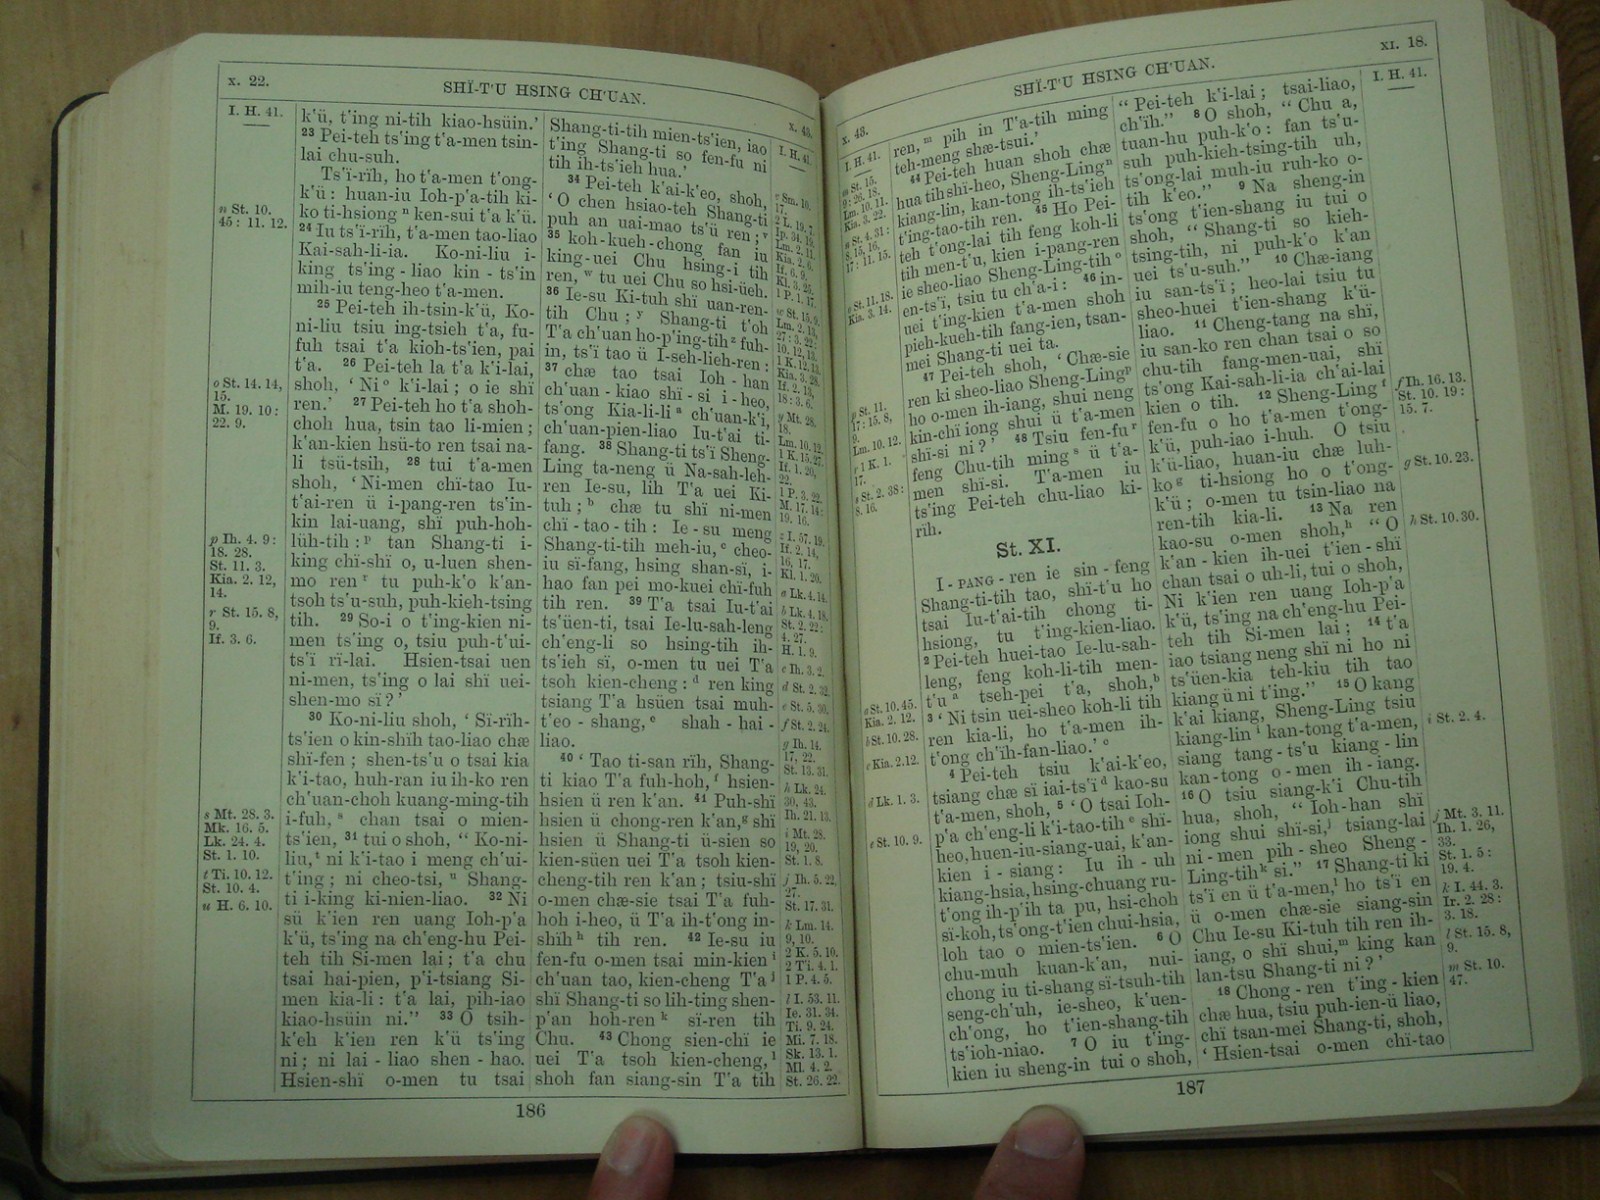 x. 22.
SHÏ-T'U HSING CH'UAN.
x. 43.
I. H. 41.
n St. 10.
45: 11. 12.
o St. 14. 14,
15.
M. 19. 10:
22. 9.
p Ih. 4. 9:
18. 28.
St. 11. 3.
Kia. 2. 12,
14.
r St. 15. 8,
9.
If. 3. 6.
s Mt. 28. 3.
Mk. 16. 5.
Lk. 24. 4.
St. 1. 10.
t Ti. 10. 12.
St. 10. 4.
u H. 6. 10.
k'ü, t'ing ni-tih kiao-hsüin.'
23 Pei-teh ts'ing t'a-men tsin-
lai chu-suh.
Ts'ï-rïh, ho t'a-men t'ong-
k'ü: huan-iu Ioh-p'a-tih ki-
ko ti-hsiong n ken-sui t'a k'ü.
24 Iu ts'ï-rïh, t'a-men tao-liao
Kai-sah-li-ia. Ko-ni-liu i-
king ts'ing-liao kin-ts'in
mih-iu teng-heo t'a-men.
25 Pei-teh ih-tsin-k'ü, Ko-
ni-liu tsiu ing-tsieh t'a, fu-
fuh tsai t'a kioh-ts'ien, pai
t'a. 26 Pei-teh la t'a k'i-lai,
shoh, 'Ni o k'i-lai; o ie shï
ren.' 27 Pei-teh ho t'a shoh-
choh hua, tsin tao li-mien;
k'an-kien hsü-to ren tsai na-
li tsü-tsih, 28 tui t'a-men
shoh, 'Ni-men chï-tao Iu-
t'ai-ren ü i-pang-ren ts'in-
kin lai-uang, shï puh-hoh-
lüh-tih: p tan Shang-ti i-
king chï-shï o, u-luen shen-
mo ren r tu puh-k'o k'an-
tsoh ts'u-suh, puh-kieh-tsing
tih. 29 So-i o t'ing-kien ni-
men ts'ing o, tsiu puh-t'ui-
ts'ï rï-lai. Hsien-tsai uen
ni-men, ts'ing o lai shï uei-
shen-mo sï?'
30 Ko-ni-liu shoh, 'Sï-rïh-
ts'ien o kin-shïh tao-liao chæ
shï-fen; shen-ts'u o tsai kia
k'i-tao, huh-ran iu ih-ko ren
ch'uan-choh kuang-ming-tih
i-fuh, s chan tsai o mien-
ts'ien, 31 tui o shoh, "Ko-ni-
liu, t ni k'i-tao i meng ch'ui-
t'ing; ni cheo-tsi, u Shang-
ti i-king ki-nien-liao. 32 Ni
sü k'ien ren uang Ioh-p'a
k'ü, ts'ing na ch'eng-hu Pei-
teh tih Si-men lai; t'a chu
tsai hai-pien, p'i-tsiang Si-
men kia-li: t'a lai, pih-iao
kiao-hsüin ni." 33 O tsih-
k'eh k'ien ren k'ü ts'ing
ni; ni lai-liao shen-hao.
Hsien-shï o-men tu tsai
Shang-ti-tih mien-ts'ien, iao
t'ing Shang-ti so fen-fu ni
tih ih-ts'ieh hua.'
34 Pei-teh k'ai-k'eo, shoh,
'O chen hsiao-teh Shang-ti
puh an uai-mao ts'ü ren; v
35 koh-kueh-chong fan iu
king-uei Chu hsing-i tih
ren, w tu uei Chu so hsi-üeh.
36 Ie-su Ki-tuh shï uan-ren-
tih Chu; y Shang-ti t'oh
T'a ch'uan ho-p'ing-tih z fuh-
in, ts'ï tao ü I-seh-lieh-ren:
37 chæ tao tsai Ioh-han
ch'uan-kiao shï-si i-heo,
ts'ong Kia-li-li a ch'uan-k'i,
ch'uan-pien-liao Iu-t'ai ti-
fang. 38 Shang-ti ts'ï Sheng-
Ling ta-neng ü Na-sah-leh-
ren Ie-su, lih T'a uei Ki-
tuh; b chæ tu shï ni-men
chï-tao-tih: Ie-su meng
Shang-ti-tih meh-iu, c cheo-
iu sï-fang, hsing shan-sï, i-
hao fan pei mo-kuei chï-fuh
tih ren. 39 T'a tsai Iu-t'ai
ts'üen-ti, tsai Ie-lu-sah-leng
ch'eng-li so hsing-tih ih-
ts'ieh sï, o-men tu uei T'a
tsoh kien-cheng: d ren king
tsiang T'a hsüen tsai muh-
t'eo-shang, e shah-hai-
liao.
40 'Tao ti-san rïh, Shang-
ti kiao T'a fuh-hoh, f hsien-
hsien ü ren k'an. 41 Puh-shï
hsien ü chong-ren k'an, g shï
hsien ü Shang-ti ü-sien so
kien-süen uei T'a tsoh kien-
cheng-tih ren k'an; tsiu-shï
o-men chæ-sie tsai T'a fuh-
hoh i-heo, ü T'a ih-t'ong in-
shïh h tih ren. 42 Ie-su iu
fen-fu o-men tsai min-kien i
ch'uan tao, kien-cheng T'a j
shï Shang-ti so lih-ting shen-
p'an hoh-ren k sï-ren tih
Chu. 43 Chong sien-chï ie
uei T'a tsoh kien-cheng, l
shoh fan siang-sin T'a tih
I. H. 41.
v Sm. 10.
17.
2 L. 19. 7.
Ip. 34. 19.
Lm. 2. 11.
Kia. 2. 6.
If. 6. 9.
Kl. 3. 25.
1 P. 1. 17.
w St. 15. 9.
Lm. 2. 13,
27: 3. 22:
10. 12, 13.
1 K. 12. 13.
Kia. 3. 28.
If. 2. 13,
18: 3. 6.
y Mt. 28.
18.
Lm. 10. 12.
1 K. 15. 27.
If. 1. 20,
22.
1 P. 3. 22.
M. 17. 14:
19. 16.
z I. 57. 19.
If. 2. 14,
16, 17.
Kl. 1. 20.
a Lk. 4. 14.
b Lk. 4. 18.
St. 2. 22:
4. 27.
H. 1. 9.
c Ih. 3. 2.
d St. 2. 32.
e St. 5. 30.
f St. 2. 24.
g Ih. 14.
17, 22.
St. 13. 31.
h Lk. 24.
30, 43.
Ih. 21. 13.
i Mt. 28.
19, 20.
St. 1. 8.
j Ih. 5. 22,
27.
St. 17. 31.
k Lm. 14.
9, 10.
2 K. 5. 10.
2 Ti. 4. 1.
1 P. 4. 5.
l I. 53. 11.
Ie. 31. 34.
Ti. 9. 24.
Mi. 7. 18.
Sk. 13. 1.
Ml. 4. 2.
St. 26. 22.
186
x. 43.
SHÏ-T'U HSING CH'UAN.
xi. 18.
I. H. 41.
m St. 15.
9: 26. 18.
Lm. 10. 11.
Kia. 3. 22.
n St. 4. 31:
8. 15, 16,
17: 11. 15.
o St. 11. 18.
Kia. 3. 14.
p St. 11.
17: 15. 8,
9.
Lm. 10. 12.
r 1 K. 1.
17.
s St. 2. 38:
8. 16.
a St. 10. 45.
Kia. 2. 12.
b St. 10. 28.
c Kia. 2. 12.
d Lk. 1. 3.
e St. 10. 9.
ren, m pih in T'a-tih ming
teh-meng shæ-tsui.'
44 Pei-teh huan shoh chæ
hua tih shï-heo, Sheng-Ling n
kiang-lin, kan-tong ih-ts'ieh
t'ing-tao-tih ren. 45 Ho Pei-
teh t'ong-lai tih feng koh-li
tih men-t'u, kien i-pang-ren
ie sheo-liao Sheng-Ling-tih o
en-ts'ï, tsiu tu ch'a-i: 46 in-
uei t'ing-kien t'a-men shoh
pieh-kueh-tih fang-ien, tsan-
mei Shang-ti uei ta.
47 Pei-teh shoh, 'Chæ-sie
ren ki sheo-liao Sheng-Ling p
ho o-men ih-iang, shui neng
kin-chï iong shui ü t'a-men
shï-si ni?' 48 Tsiu fen-fu r
feng Chu-tih ming s ü t'a-
men shï-si. T'a-men iu
ts'ing Pei-teh chu-liao ki-
rïh.
St. XI.
I-PANG-ren ie sin-feng
Shang-ti-tih tao, shï-t'u ho
tsai Iu-t'ai-tih chong ti-
hsiong, tu t'ing-kien-liao.
2 Pei-teh huei-tao Ie-lu-sah-
leng, feng koh-li-tih men-
t'u a tseh-pei t'a, shoh, b
3 'Ni tsin uei-sheo koh-li tih
ren kia-li, ho t'a-men ih-
t'ong ch'ïh-fan-liao.' c
4 Pei-teh tsiu k'ai-k'eo,
tsiang chæ sï iai-ts'ï d kao-su
t'a-men, shoh, 5 'O tsai Ioh-
p'a ch'eng-li k'i-tao-tih e shï-
heo, huen-iu-siang-uai, k'an-
kien i-siang: Iu ih-uh
kiang-hsia, hsing-chuang ru-
t'ong ih-p'ih ta pu, hsi-choh
sï-koh, ts'ong-t'ien chui-hsia,
loh tao o mien-ts'ien. 6 O
chu-muh kuan-k'an, nui-
chong iu ti-shang sï-tsuh-tih
seng-ch'uh, ie-sheo, k'uen-
ch'ong, ho t'ien-shang-tih
ts'ioh-niao. 7 O iu t'ing-
kien iu sheng-in tui o shoh,
"Pei-teh k'i-lai; tsai-liao,
ch'ïh." 8 O shoh, "Chu a,
tuan-hu puh-k'o: fan ts'u-
suh puh-kieh-tsing-tih uh,
ts'ong-lai muh-iu ruh-ko o-
tih k'eo." 9 Na sheng-in
ts'ong t'ien-shang iu tui o
shoh, "Shang-ti so kieh-
tsing-tih, ni puh-k'o k'an
uei ts'u-suh." 10 Chæ-iang
iu san-ts'ï; heo-lai tsiu tu
sheo-huei t'ien-shang k'ü-
liao. 11 Cheng-tang na shï,
iu san-ko ren chan tsai o so
chu-tih fang-men-uai, shï
ts'ong Kai-sah-li-ia ch'ai-lai
kien o tih. 12 Sheng-Ling f
fen-fu o ho t'a-men t'ong-
k'ü, puh-iao i-huh. O tsiu
k'ü-liao, huan-iu chæ luh-
ko g ti-hsiong ho o t'ong-
k'ü; o-men tu tsin-liao na
ren-tih kia-li. 13 Na ren
kao-su o-men shoh, h "O
k'an-kien ih-uei t'ien-shï
chan tsai o uh-li, tui o shoh,
Ni k'ien ren uang Ioh-p'a
k'ü, ts'ing na ch'eng-hu Pei-
teh tih Si-men lai; 14 t'a
iao tsiang neng shï ni ho ni
ts'üen-kia teh-kiu tih tao
kiang ü ni t'ing." 15 O kang
k'ai kiang, Sheng-Ling tsiu
kiang-lin i kan-tong t'a-men,
siang tang-ts'u kiang-lin
kan-tong o-men ih-iang.
16 O tsiu siang-k'i Chu-tih
hua, shoh, "Ioh-han shï
iong shui shï-si, j tsiang-lai
ni-men pih-sheo Sheng-
Ling-tih k si." 17 Shang-ti ki
ts'ï en ü t'a-men, l ho ts'ï en
ü o-men chæ-sie siang-sin
Chu Ie-su Ki-tuh tih ren ih-
iang, o shï shui, m king kan
lan-tsu Shang-ti ni?'
18 Chong-ren t'ing-kien
chæ hua, tsiu puh-ien-ü liao,
chï tsan-mei Shang-ti, shoh,
'Hsien-tsai o-men chï-tao
I. H. 41.
f Ih. 16. 13.
St. 10. 19:
15. 7.
g St. 10. 23.
h St. 10. 30.
i St. 2. 4.
j Mt. 3. 11.
Ih. 1. 26,
33.
St. 1. 5:
19. 4.
k I. 44. 3.
Ir. 2. 28:
3. 18.
l St. 15. 8,
9.
m St. 10.
47.
187